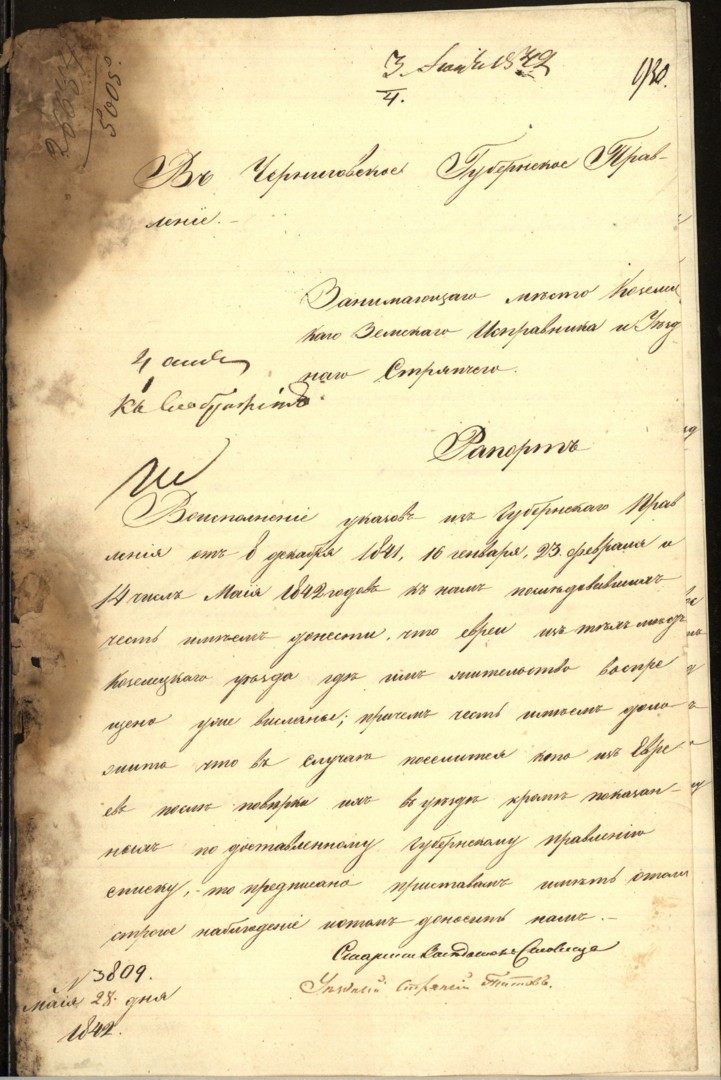 3 Іюня 1842
4.
930.
Въ Черниговское Губернское Прав-
леніе.-
Занимающаго мѣсто Козелец
каго Земскаго Исправника и Уѣзд
наго Стряпчего.
Рапортъ
Воисполненіе указовъ изъ Губернскаго Прав
ленія отъ 8 декабря 1841, 16 генваря, 23 февраля и
14 числъ Маія 1842 годовъ къ намъ последовавшихъ
честь имѣемъ донести, что евреи изъ тѣхъ мѣстъ
Козелецкаго уѣзда где имъ жительство воспре
щено уже висланы; причемъ честь имѣемъ допо
лнить что въ случаю поселится кто изъ Евре
евъ послѣ повѣрки ихъ въ уѣздѣ кромѣ показан-
ныхъ по доставленному Губернскому правленію
списку,- то предписано приставамъ имѣть
строгое наблюденіе и доносить намъ.-
Уѣздный Стряпчій Титовъ.
N 3809.
Маія 28 дня
1842.